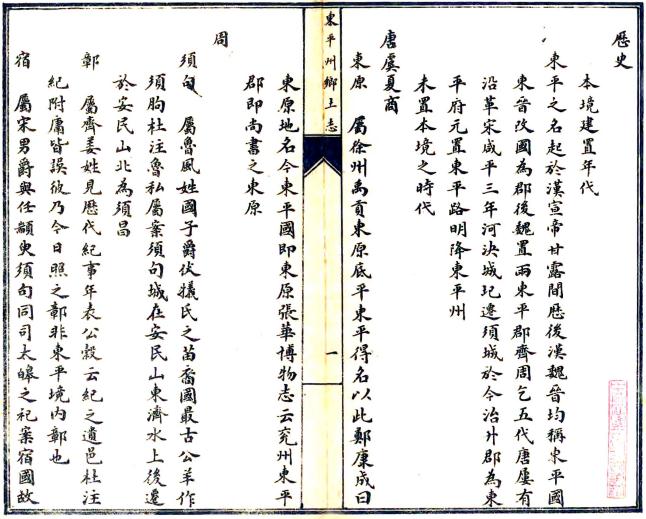 歷史
本境建置年代
東平之名起於漢宣帝甘露間歷後漢魏晉均稱東平國
東晉改國為郡後魏置兩東平郡齊周乞五代唐屢有
沿革宋咸平三年河決城圮遷須城於今治升郡為東
平府元置東平路明降東平州
未置本境之時代
唐虞夏商
東原　屬徐州禹貢東原底平東平得名以此鄭康成曰
東平州鄉土志
一
東原地名今東平國即東原張華博物志云兖州東平
郡即尚書之東原
周
須句　屬魯風姓國子爵伏犠氏之苗裔國最古公羊作
須朐杜注魯私屬案須句城在安民山東濟水上後遷
於安民山北為須昌
鄣　屬齊姜姓見歷代紀事年表公穀云紀之遺邑杜注
紀附庸皆誤彼乃今日照之鄣非東平境内鄣也
宿　屬宋男爵與任顓臾須句同司太皞之祀案宿國故